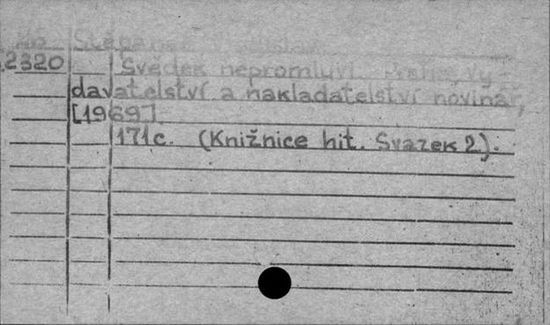 Štěpánek
2320 Svědek nepromluví. Praha, Vy
davatelství a nakladatelství novinář,
[1969]
171 c. (Knižnice hit. Svazek 2).